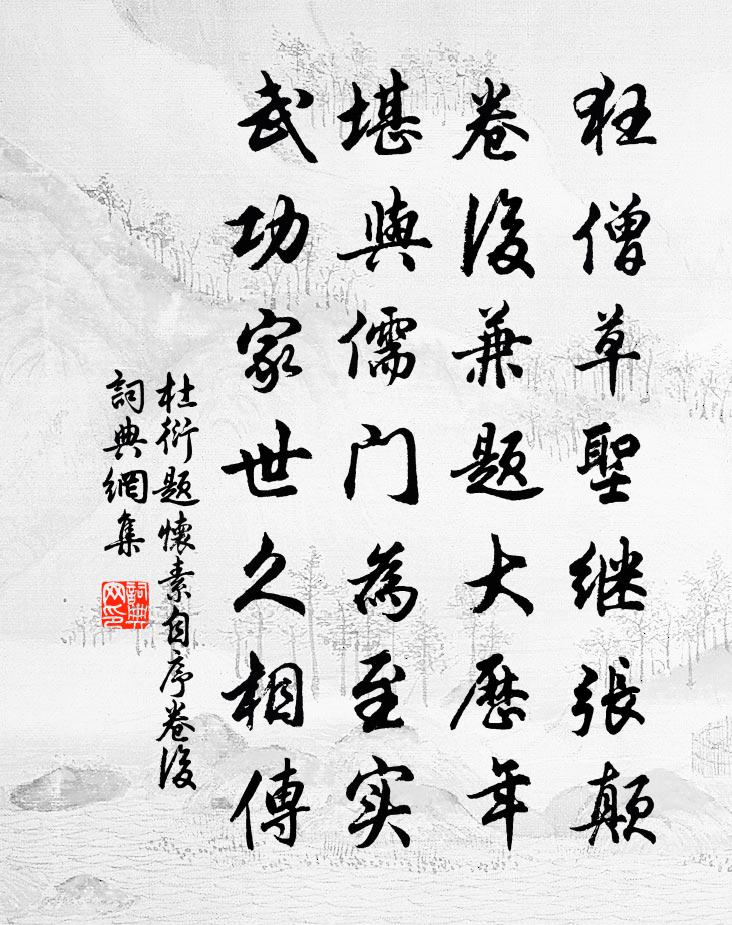 狂僧草聖继張颠
卷後兼题大歷年
堪與儒门為至实
武功家世久相傳
杜衍题懷素自序卷後
詞典網集
詞典網印